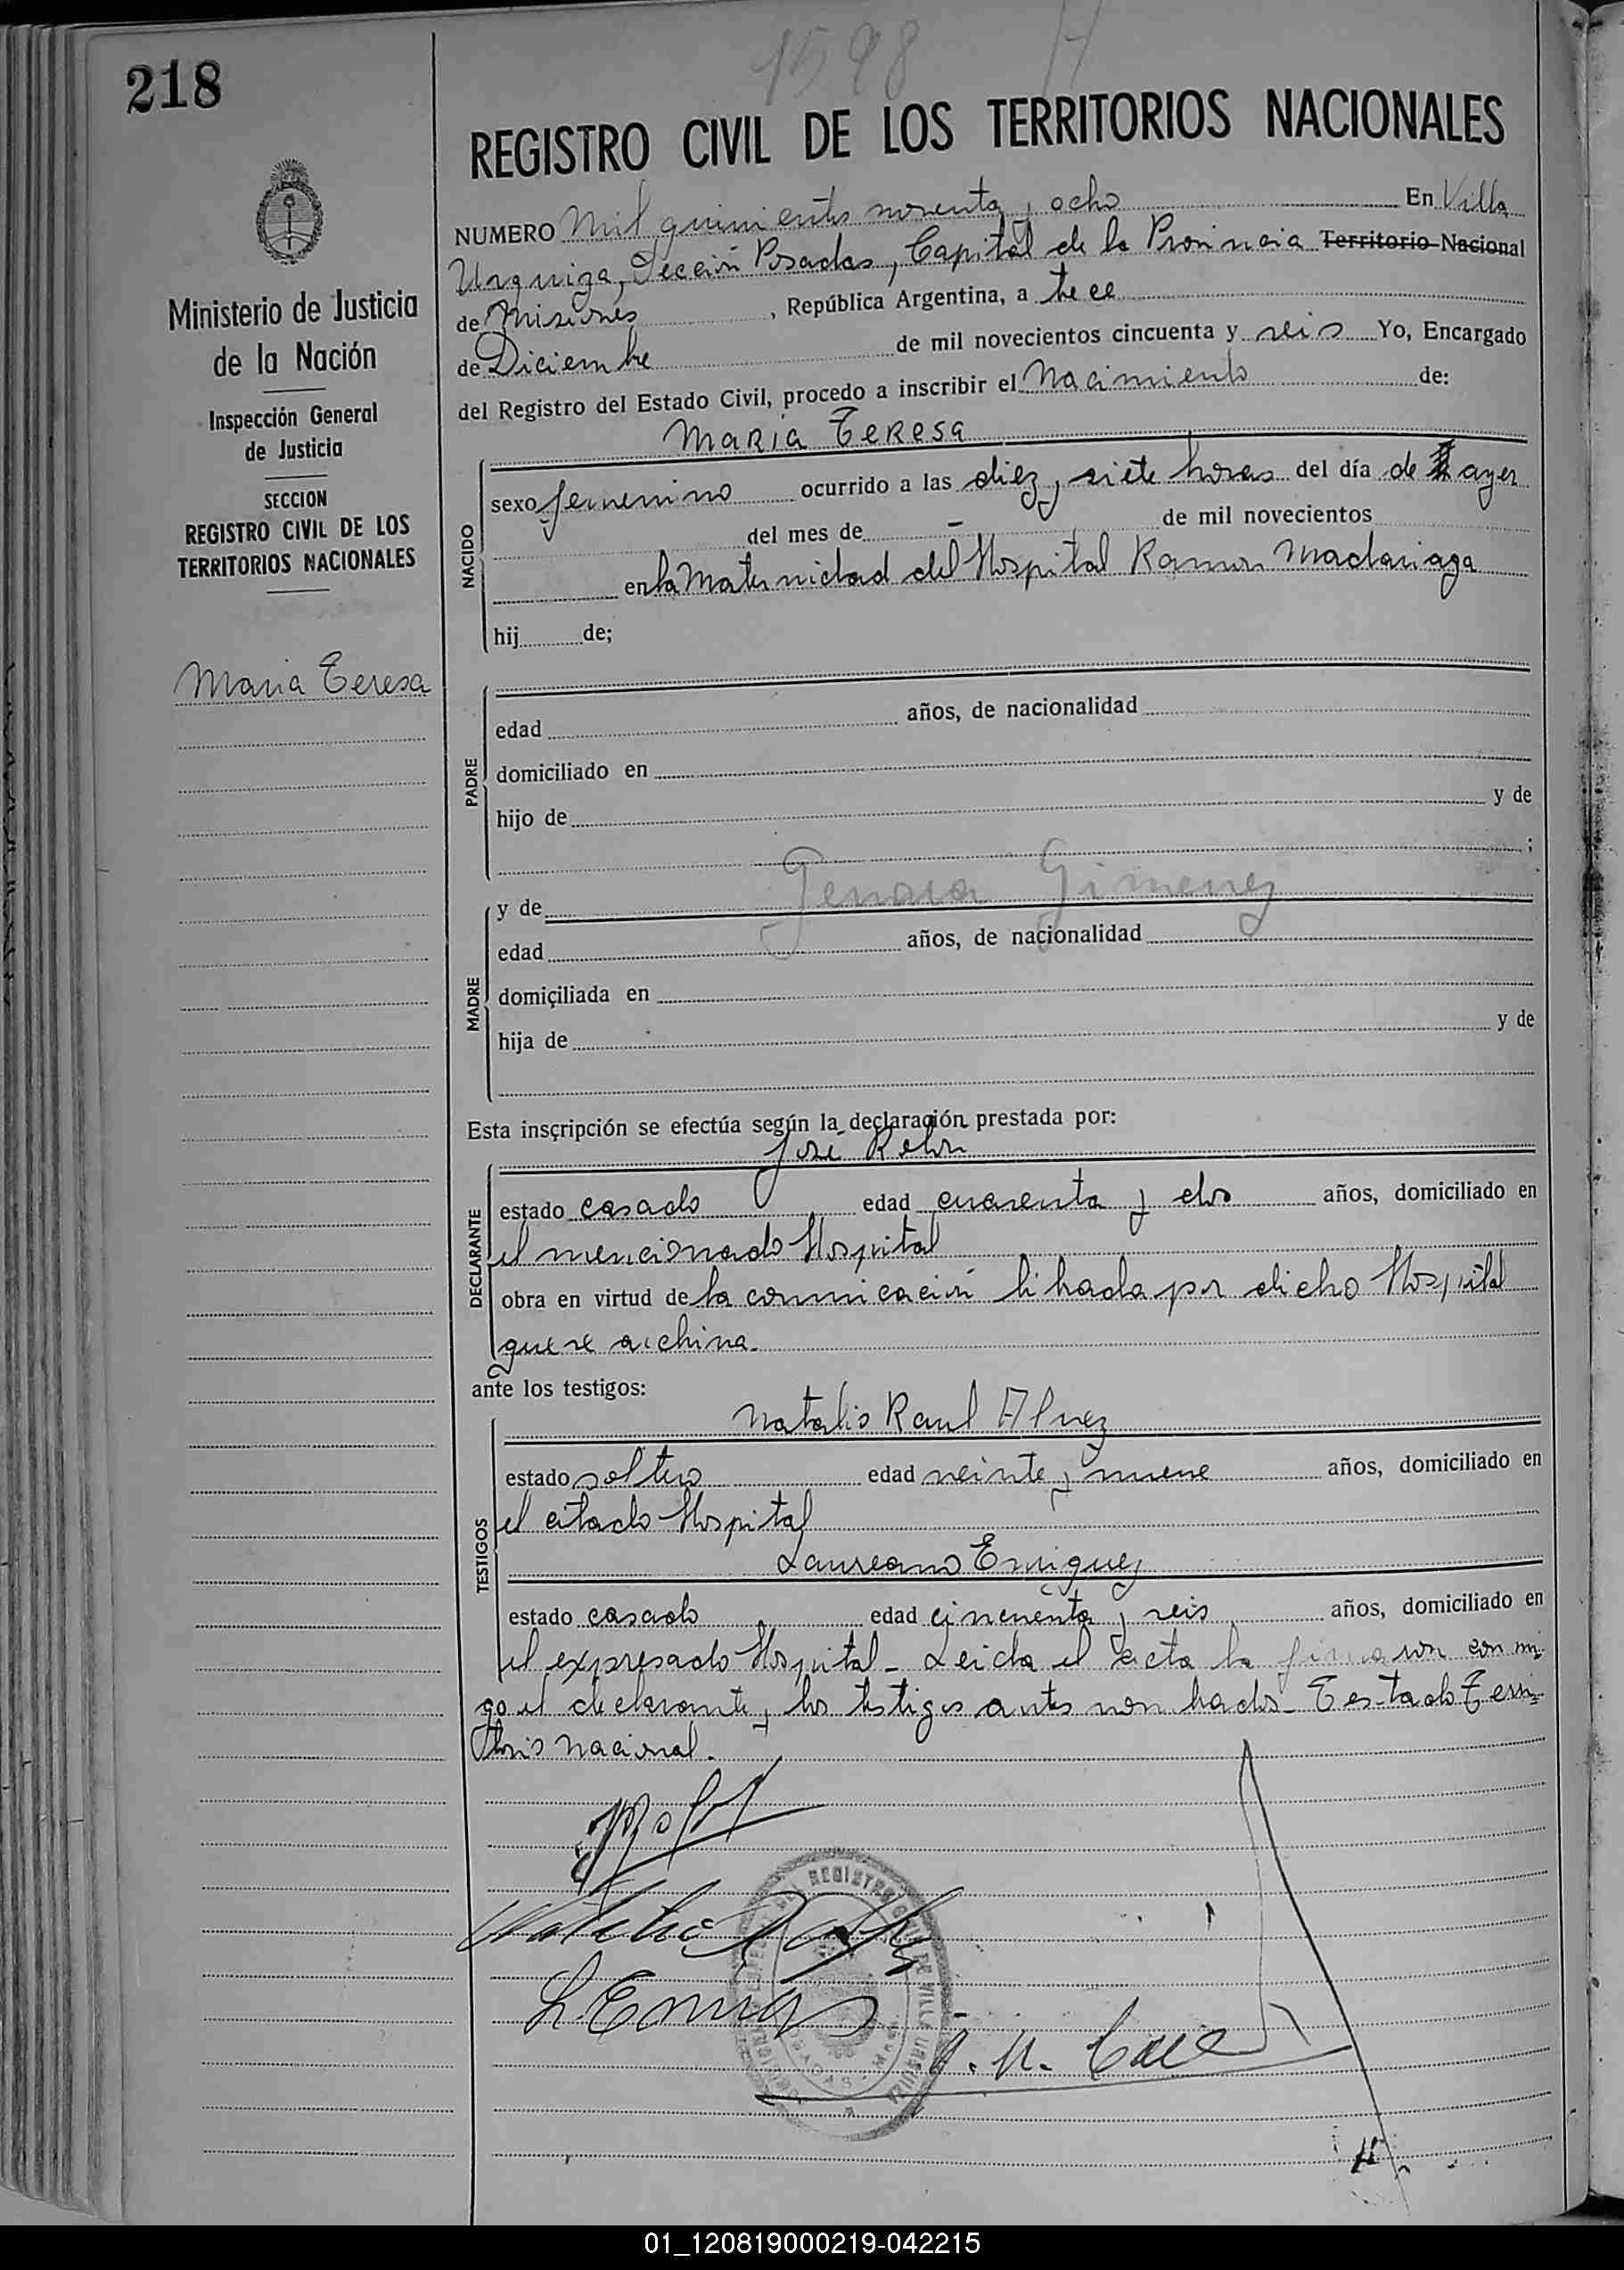 218
1598 H
REGISTRO CIVIL DE LOS TERRITORIOS NACIONALES
NUMERO Mil quinientos noventa y ocho En Villa
Urquiza, Sección Posadas, Capital de la Provincia Territorio Nacional
de Misiones, República Argentina, a trece
de Diciembre de mil novecientos cincuenta y seis Yo, Encargado
del Registro del Estado Civil, procedo a inscribir el Nacimiento de:
Ministerio de Justicia
de la Nación
Inspección General
de Justicia
SECCION
REGISTRO CIVIL DE LOS
TERRITORIOS NACIONALES
Maria Teresa
Maria Teresa
NACIDO
sexo femenino ocurrido a las diez y siete horas del día de ayer
del mes de - de mil novecientos
en la Maternidad del Hospital Ramon Madariaga
hij de;
PADRE
edad años, de nacionalidad
domiciliado en
hijo de y de
;
MADRE
y de Genara Gimenez
edad años, de nacionalidad
domiciliada en
hija de y de
Esta inscripción se efectúa según la declaración prestada por:
José Rolon
DECLARANTE
estado casado edad cuarenta y dos años, domiciliado en
el mencionado Hospital
obra en virtud de la comunicación librada por dicho Hospital
que se archiva.
ante los testigos:
TESTIGOS
Natalio Raul
estado soltero edad veinte y nueve años, domiciliado en
el citado Hospital
Laureano Enriquez
estado casado edad cincuenta y seis años, domiciliado en
el expresado Hospital - Leida el acta la firmaron conmi-
go el declarante y los testigos antes nombrados - Testado Terri-
torio nacional.
REGISTRO CIVIL DE VILLA URQUIZA
01_120819000219-042215